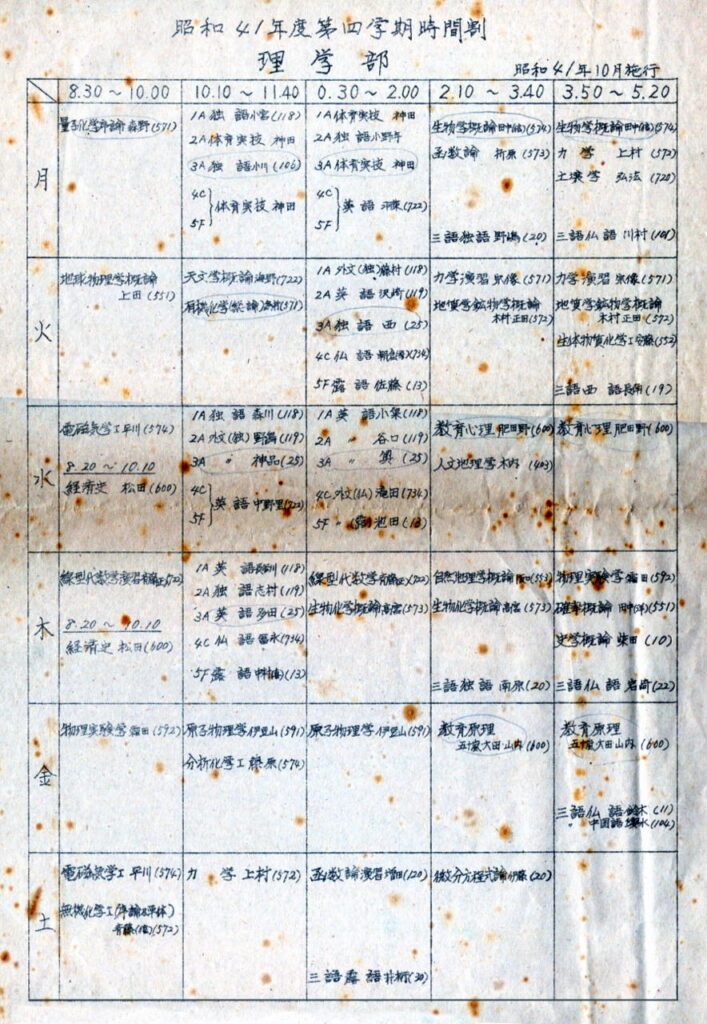 昭和41年度第四学期時間割
理学部
昭和41年10月施行
8.30 ～ 10.00
10.10 ～ 11.40
0.30 ～ 2.00
2.10 ～ 3.40
3.50 ～ 5.20
月
量子化学序論 森野(571)
1A 独 語 小宮(118)
2A 体育実技 神田
3A 独 語 小川(106)
4C
5F
体育実技 神田
1A 体育実技 神田
2A 独 語 小野寺
3A 体育実技 神田
4C
5F
英 語 (722)
生物学概論 (574)
函数論 (573)
三語独語 野嶋(20)
生物学概論 (574)
力 学 上村(572)
土壌学 弘法(720)
三語仏語 川村(101)
火
地球物理学概論
上田(551)
天文学概論 海野(722)
有機化学(総論) (571)
1A 外文(独) 藤村(118)
2A 英 語 沢崎(119)
3A 独 語 西(25)
4C 仏 語 (734)
5F 露 語 佐藤(13)
力学演習 宗像(571)
地質学鉱物学概論
木村 正田(572)
力学演習 宗像(571)
地質学鉱物学概論
木村 正田(572)
生体物質化学I 安藤(552)
三語西語 長南(19)
水
電磁気学I 平川(574)
8.20 ～ 10.10
経済史 松田(600)
1A 独 語 森川(118)
2A 外文(独) 野嶋(119)
3A 〃 神品(25)
4C
5F
英 語 中野里(722)
1A 英 語 小葉(118)
2A 〃 谷口(119)
3A 〃 (25)
4C 外文(仏) 滝田(734)
5F 〃 (露) 池田(13)
教育心理 肥田野(600)
人文地理学 木内(403)
教育心理 肥田野(600)
木
線型代数学演習 (722)
8.20 ～ 10.10
経済史 松田(600)
1A 英 語 長谷川(118)
2A 独 語 志村(119)
3A 英 語 多田(25)
4C 仏 語 冨永(734)
5F 露 語 (13)
線型代数学 (722)
生物化学概論 高宮(573)
自然地理学概論 (553)
生物化学概論 高宮(573)
三語独語 南原(20)
物理実験学 霜田(592)
確率概論 (551)
史学概論 柴田(10)
三語仏語 岩崎(22)
金
物理実験学 霜田(592)
原子物理学 伊豆山(591)
分析化学I 藤原(574)
原子物理学 伊豆山(591)
教育原理
五十嵐 大田 山内(600)
教育原理
五十嵐 大田 山内(600)
三語仏語 鈴木(11)
〃 中国語 (104)
土
電磁気学I 平川(574)
無機化学I(序論及単体)
斉藤(信)(572)
力 学 上村(572)
函数論演習 増田(120)
三語露語 (30)
微分方程式論 伊藤(20)